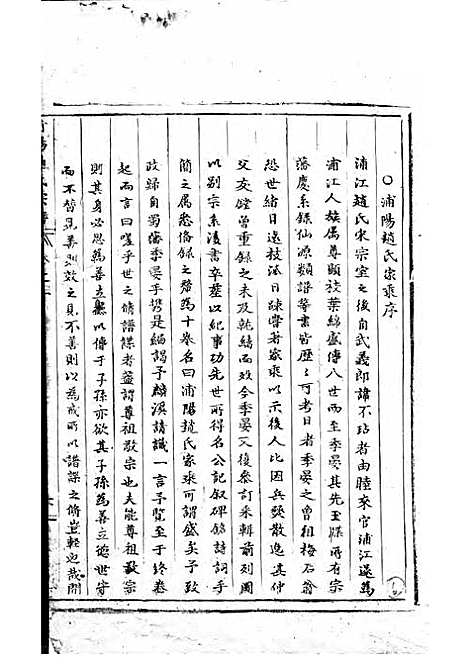 ○浦陽趙氏家乘序
浦江趙氏宋宗室之後自武義郎諱不玷者由睦來官浦江遂為
浦江人族属尊顕枝葉綿盛傳八世而至季晏其先玉牒所有宗
藩慶系錄仙源類譜等書皆歷歷可考日者季晏之曽祖梅石翁
恐世緒日逺枝派日疎甞著家乘以示後人比因兵燹散逸其仲
父友鏜曽重錄之未及就緒而殁今季晏又復參訂采輯前列圖
以别宗系凌書卒塟以紀事功先世所得名公記叙碑銘詩詞手
簡之属悉偹錄之釐為十卷名曰浦陽趙氏家乘可謂盛矣予致
政歸自蜀藩季晏乎携是編謁予麟溪請識一言予覧至于終卷
起而言曰嗟乎世之脩譜諜者葢謂尊祖敬宗也夫能尊祖敬宗
則其身必思為善立德以傳于子孫亦欲其子孫為善立德世守
而不替見善則效之見不善則以為戒所以譜諜之脩豈輕也哉間